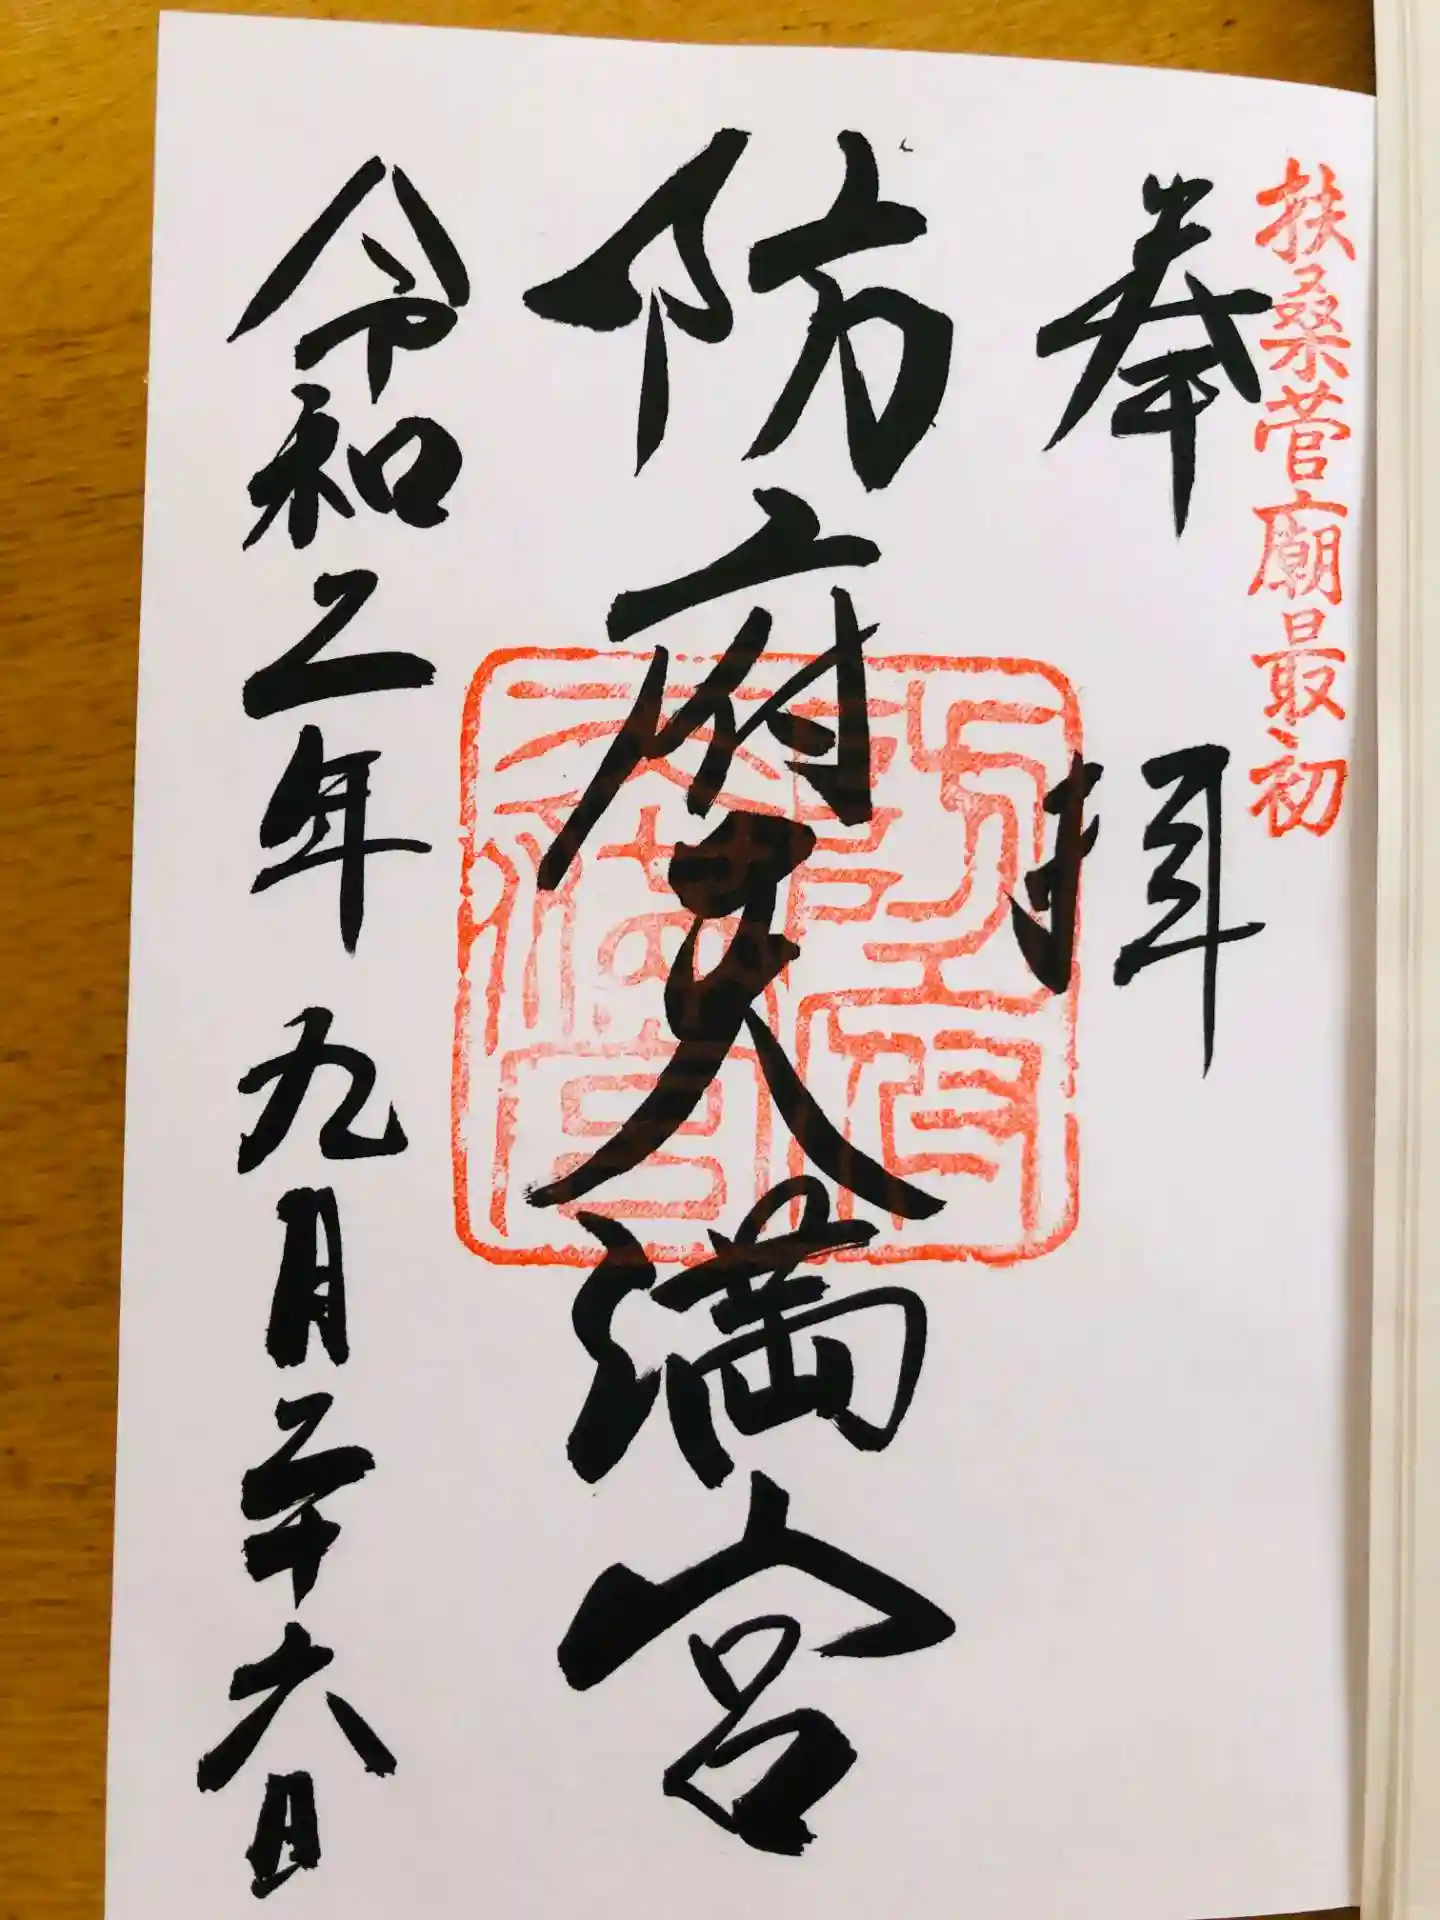 扶桑菅廟最初
奉拝
防府天満宮
防府天満宮
令和二年九月二十六日